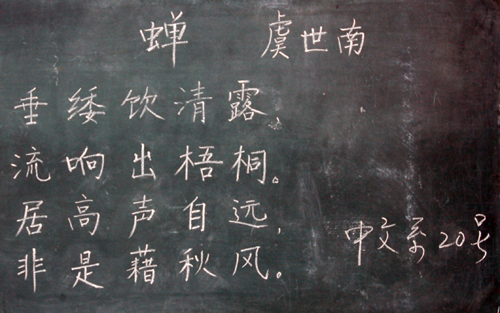 蝉 虞世南
垂緌饮清露、
流响出梧桐。
居高声自远,
非是藉秋风。
中文系20号